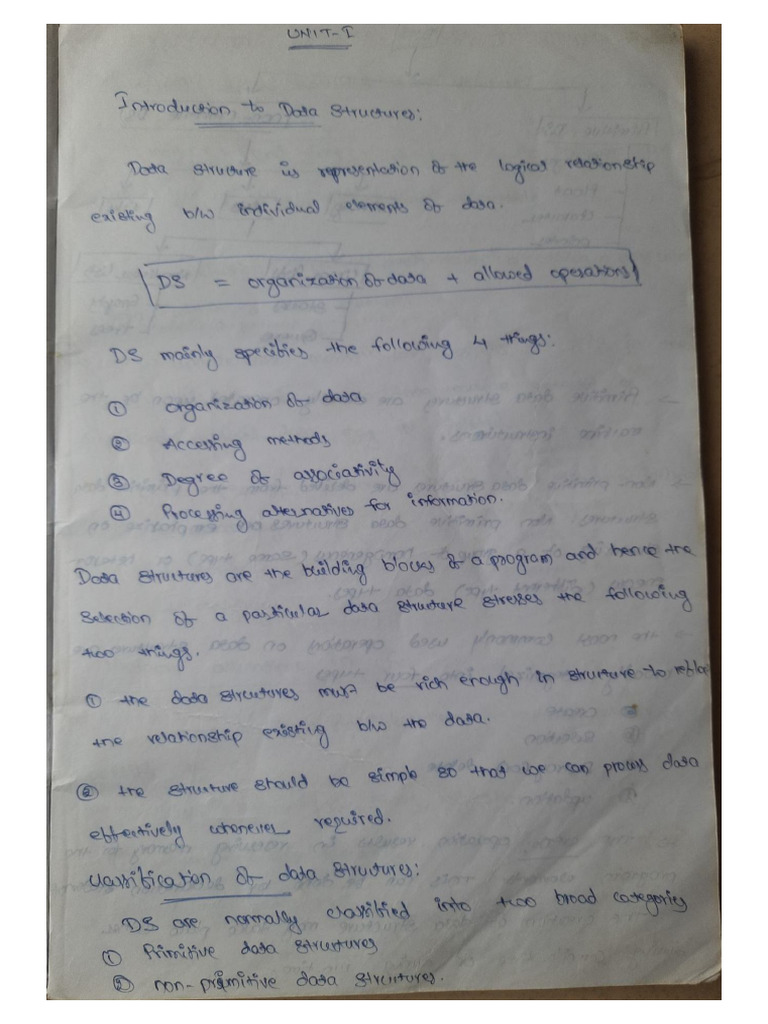 UNIT-I
Introduction to Data Structures:
Data structure is representation of the logical relationship
existing b/w individual elements of data.
DS = organization of data + allowed operations
DS mainly specifies the following 4 things:
① organization of data
② Accessing methods
③ Degree of associativity
④ Processing alternatives for information.
Data structures are the building blocks of a program and hence the
selection of a particular data structure stresses the following
two things.
① the data structures must be rich enough in structure to
the relationship existing b/w the data.
② the structure should be simple so that we can process data
effectively whenever required.
classification of data structures:
DS are normally classified into two broad categories
① Primitive data structures
② non-primitive data structures.